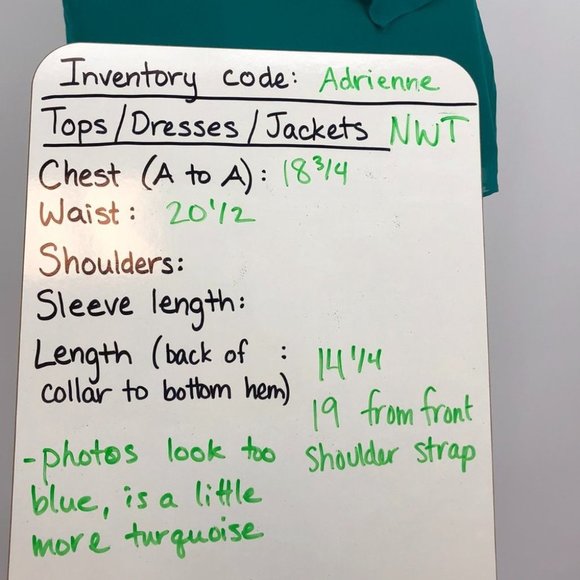 Inventory code: Adrienne
Tops/Dresses/Jackets NWT
Chest (A to A): 18 3/4
Waist: 20 1/2
Shoulders:
Sleeve length:
Length (back of : 14 1/4
collar to bottom hem)
19 from front
shoulder strap
-photos look too
blue, is a little
more turquoise